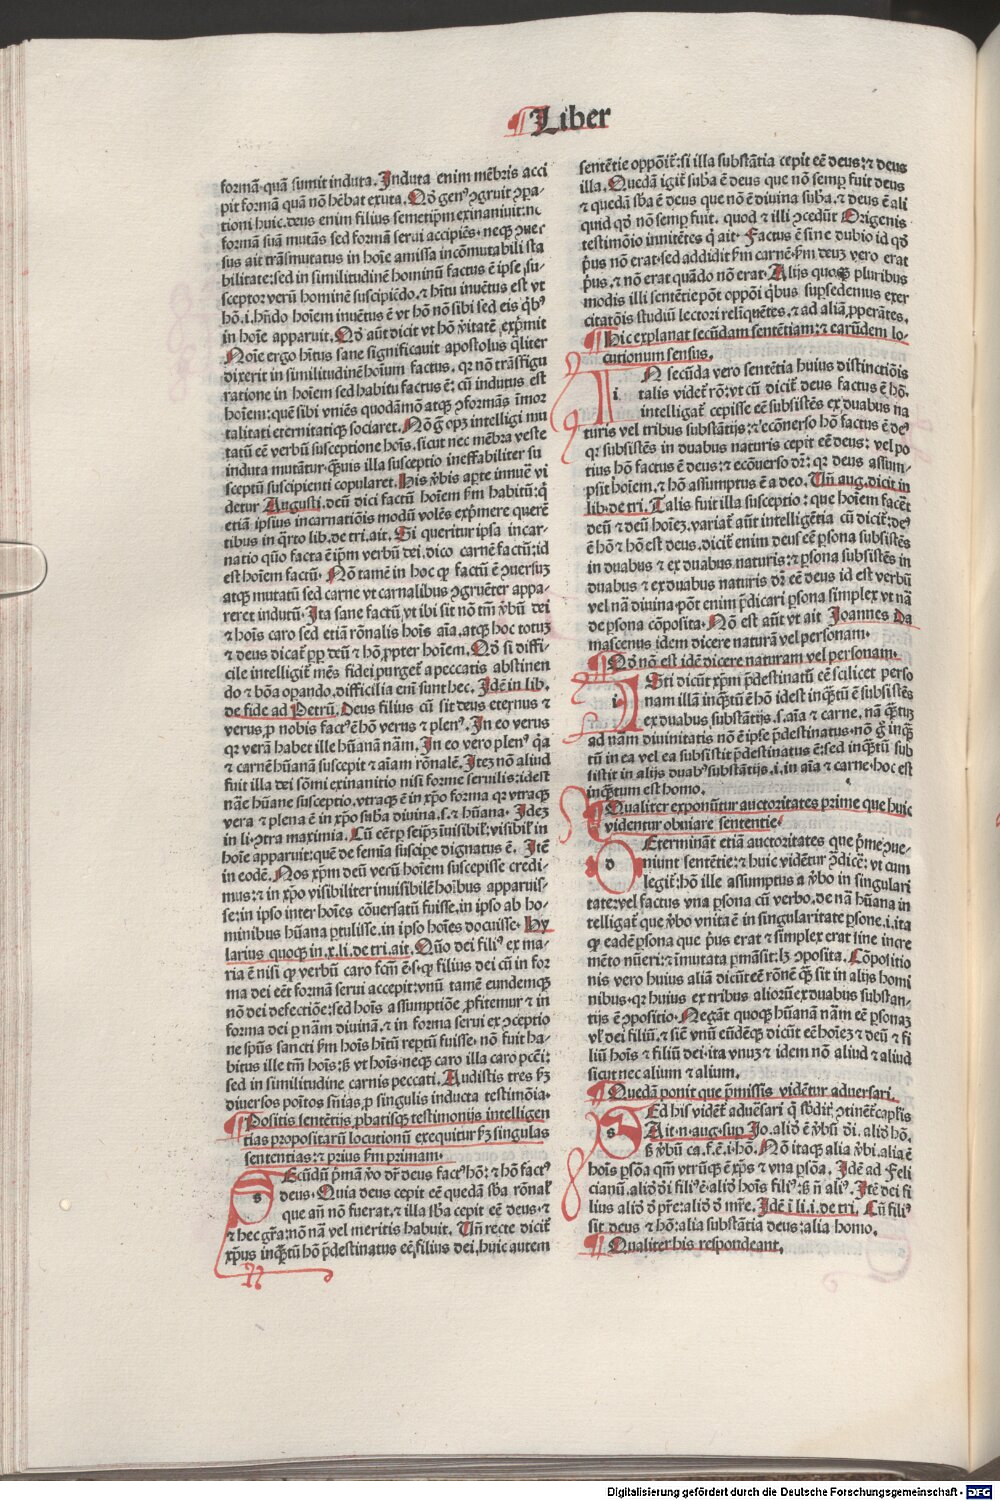 ¶Liber
formã quã sumit induta. Induta enim mẽbris acci
pit formã quã nõ hẽbat exuta. Qđ genꝰ ꝯgruit ꝯpa-
tioni huic. deus enim filius semetip̃m exinaniuit: nõ
formã suã mutãs sed formã serui accipiẽs. neqꝫ ꝯuer
sus aut trãsmutatus in hoĩe amissa incõmutabili sta
bilitate: sed in similitudinẽ hominũ factus ẽ ipse su-
sceptor verũ hominẽ suscipiẽdo. ⁊ hĩtu inuẽtus est vt
hõ. i. hñdo hoĩem inuẽtus ẽ vt hõ nõ sibi sed eis qͥbꝰ
in hoĩe apparuit. Qđ aũt dicit vt hõ ṽitatẽ exp̃mit
Noĩe ergo hĩtus sane significauit apostolus qͣliter
dixerit in similitudinẽ hoĩum factus. qꝛ nõ trãsfigu
ratione in hoĩem sed habitu factus ẽ: cũ indutus est
hoĩem: quẽ sibi vniẽs quodãmõ atqꝫ ꝯformãs ĩmor
talitati eternitatiqꝫ sociaret. Nõ ḡ opꝫ intelligi mu
tatũ eẽ verbũ susceptione hoĩs. sicut nec mẽbra veste
induta mutãtur. quãuis illa susceptio ineffabiliter su
sceptũ suscipienti copularet. His ṽbis apte innuẽ vi
detur Augusti. deũ dici factũ hoĩem ẞm habitũ: qͥ
etiã ipsius incarnatiõis modũ volẽs exp̃mere querẽ
tibus in qͣrto lib. de tri. ait. Si queritur ipsa incar-
natio quõ facta ẽ ip̃m verbũ dei. dico carnẽ factũ: id
est hoĩem factũ. Nõ tamẽ in hoc qꝫ factũ ẽ ꝯuersuꝫ
atqꝫ mutatũ sed carne vt carnalibus ꝯgruẽter appa-
reret indutũ. Ita sane factũ vt ibi sit nõ tm̃ ṽbũ dei
⁊ hoĩs caro sed etiã rõnalis hoĩs aĩa. atqꝫ hoc totuꝫ
⁊ deus dicat̃ ꝓp̃ deũ ⁊ hõ ꝓpter hoĩem. Qđ si diffi-
cile intelligit̃ mẽs fidei purget̃ a peccatis abstinen
do ⁊ bõa opando. difficilia em̃ sunt hec. Idẽ in lib.
de fide ad Petrũ. Deus filius cũ sit deus eternus ⁊
verus ꝓ nobis factꝰ ẽ hõ verus ⁊ plenꝰ. In eo verus
qꝛ verã habet ille hũanã nãm. In eo vero plenꝰ qꝛ
⁊ carnẽ hũanã suscepit ⁊ aĩam rõnalẽ. Itẽ nõ aliud
fuit illa dei sõmi exinanitio nisi forme seruilis: idest
nãe hũane susceptio. vtraqꝫ ẽ in xp̃o forma qꝛ vtraqꝫ
vera ⁊ plena ẽ in xp̃o suba diuina .s. ⁊ hũana. Idẽ
in li. ꝯtra maximia. Cũ eẽt p seip̃ꝫ ĩuisibil̃: visibil̃ in
hoĩe apparuit: quẽ de femĩa suscipe dignatus ẽ. Itẽ
in eodẽ. Nos xp̃m deũ verũ hoĩem suscepisse credi-
mus: ⁊ in xp̃o visibiliter inuisibilẽ hoĩbus apparuis-
se: in ipso inter hoĩes cõuersatũ fuisse. in ipso ab ho-
minibus hũana ꝑtulisse. in ipso hoĩes docuisse. Hy
larius quoqꝫ in .x. li. de tri. ait. Quõ dei filiꝰ ex ma-
ria ẽ nisi qꝫ verbũ caro fcm̃ ẽ. s. qꝫ filius dei cũ in for
ma dei eẽt formã serui accepit: vnũ tamẽ eundemqꝫ
nõ dei defectiõe: sed hoĩs assumptiõe ꝓfitemur ⁊ in
forma dei p nãm diuinã. ⁊ in forma serui ex ꝯceptio
ne sp̃us sancti ẞm hoĩs hĩtũ reptũ fuisse. nõ fuit ha-
bitus ille tm̃ hoĩs: ß vt hoĩs. neqꝫ caro illa caro pcẽi:
sed in similitudine carnis peccati. Audistis tres ẞꝫ
diuersos poĩtos sñias ꝓ singulis inducta testimõia.
¶Positis sentẽtijs ꝓbatisqꝫ testimonijs intelligen
tias propositarũ locutionũ exequitur ẞꝫ singulas
sententias: ⁊ prius ẞm primam.
s Ecũdũ p̃mã ṽo dr̃ deus factꝰ hõ: ⁊ hõ factꝰ
deus. Quia deus cepit eẽ quedã sba rõnal̃
que añ nõ fuerat. ⁊ illa sba cepit eẽ deus. ⁊
⁊ hec gr̃a: nõ nã vel meritis habuit. Vñ recte dicit̃
xp̃us inqꝫtũ hõ p̃destinatus eẽ filius dei. huic autem
sentẽtie oppõit̃: si illa substãtia cepit eẽ deus: ⁊ deus
illa. Quedã igit̃ suba ẽ deus que nõ semp̃ fuit deus
⁊ quedã sba ẽ deus que nõ ẽ diuina suba. ⁊ deus ẽ ali
quid qđ nõ semp̃ fuit. quod ⁊ illi ꝯcedũt Origenis
testimõio innitẽtes qͥ ait. Factus ẽ sine dubio id qđ
p̃us nõ erat. sed addidit ẞm carnẽ. ẞm deuꝫ vero erat
p̃us. ⁊ nõ erat quãdo nõ erat. Alijs quoqꝫ pluribus
modis illi sentẽtie põt oppõi qͥbus sup̃sedemus exer
citatõis studiũ lectori reliquẽtes. ⁊ ad aliã ꝓperãtes.
¶Hic explanat secũdam sentẽtiam: ⁊ earũdem lo-
cutionum sensus.
i N secũda vero sentẽtia huius distinctiõis
talis videt̃ rõ: vt cũ dicit̃ deus factus ẽ hõ.
intelligat̃ cepisse eẽ subsistẽs ex duabus na
turis vel tribus substãtijs: ⁊ ecõnerso hõ factus ẽ deꝰ
qꝛ subsistẽs in duabus naturis cepit eẽ deus: vel po
tius hõ factus ẽ deus: ⁊ ecõuerso dr̃: qꝛ deus assum-
psit hoĩem. ⁊ hõ assumptus ẽ a deo. Vñ aug. dicit in
lib. de tri. Talis fuit illa susceptio: que hoĩem facẽt
deũ ⁊ deũ hoĩeꝫ. variat̃ aũt intelligẽtia cũ dicit̃: deꝰ
ẽ hõ ⁊ hõ est deus. dicit̃ enim deus eẽ ꝑsona subsistẽs
in duabus ⁊ ex duabus naturis: ⁊ ꝑsona subsistẽs in
duabus ⁊ ex duabus naturis dr̃ eẽ deus id est verbũ
vel nã diuina. põt enim p̃dicari ꝑsona simplex vt nã
de ꝑsona cõposita. Nõ est aũt vt ait Joannes da
mascenus idem dicere naturã vel personam.
¶Qđ nõ est idẽ dicere naturam vel personam.
i Sti dicũt xp̃m p̃destinatũ eẽ scilicet perso
nam illã inqꝫtũ ẽ hõ idest inqꝫtũ ẽ subsistẽs
ex duabus substãtijs .s. aĩa ⁊ carne. nã qꝫtuꝫ
ad nam diuinitatis nõ ẽ ipse p̃destinatus. nõ ḡ inqꝫ
tũ in ea vel ea subsistit p̃destinatus ẽ: sed inqꝫtũ sub
sistit in alijs duabꝰ substãtijs .i. in aĩa ⁊ carne. hoc est
inqꝫtum est homo.
¶Qualiter exponũtur auctoritates prime que huic
videntur obuiare sententie.
d Eterminãt etiã auctoritates que p̃me ꝯue-
niunt sentẽtie: ⁊ huic vidẽtur ꝯdicẽ: vt cum
legit̃: hõ ille assumptus a ṽbo in singulari
tate: vel factus vna ꝑsona cũ verbo. de nã hũana in
telligat̃ que ṽbo vnita ẽ in singularitate ꝑsone. i. ita
qꝫ eadẽ ꝑsona que p̃us erat ⁊ simplex erat sine incre
mẽto nũeri: ⁊ ĩmutata pmãsit: lꝫ ꝯposita. Cõpositio
nis vero huius aliã dicũt eẽ rõnẽ qꝫ sit in alijs homi
nibus. qꝛ huius ex tribus aliorũ ex duabus substan-
tijs ẽ ꝯpositio. Negãt quoqꝫ hũanã nãm eẽ ꝑsonaꝫ
vl̃ dei filiũ. ⁊ sicũt vnũ eũdẽqꝫ dicũt eẽ hoĩeꝫ ⁊ deũ ⁊ fi
liũ hoĩs ⁊ filiũ dei. ita vnuꝫ ⁊ idem nõ aliud ⁊ aliud
sicut nec alium ⁊ alium.
¶Quedã ponit que p̃missis vidẽtur aduersari.
s Ed his videt̃ aduẽsari qͥ sb̃dit̃: ꝯtinẽt̃ capl̃is
Ait. n. aug. sup Jo. aliđ ẽ ṽbũ di. aliđ hõ.
ß ṽbũ ca. f. ẽ. i. hõ. Nõ itaqꝫ alia ṽbi. alia ẽ
hoĩs ꝑsõa qm̃ vtrũqꝫ ẽ xp̃s ⁊ vna ꝑsõa. Idẽ ad Feli
cianũ. aliđ di filiꝰ ẽ. aliđ hoĩs filiꝰ: ß ñ aliꝰ. Itẽ dei fi
lius aliđ đ pr̃e: aliđ đ mr̃e. Idẽ i li. i. de tri. Cũ filiꝰ
sit deus ⁊ hõ: alia substãtia deus: alia homo.
¶Qualiter his respondeant.
Digitalisierung gefördert durch die Deutsche Forschungsgemeinschaft - DFG